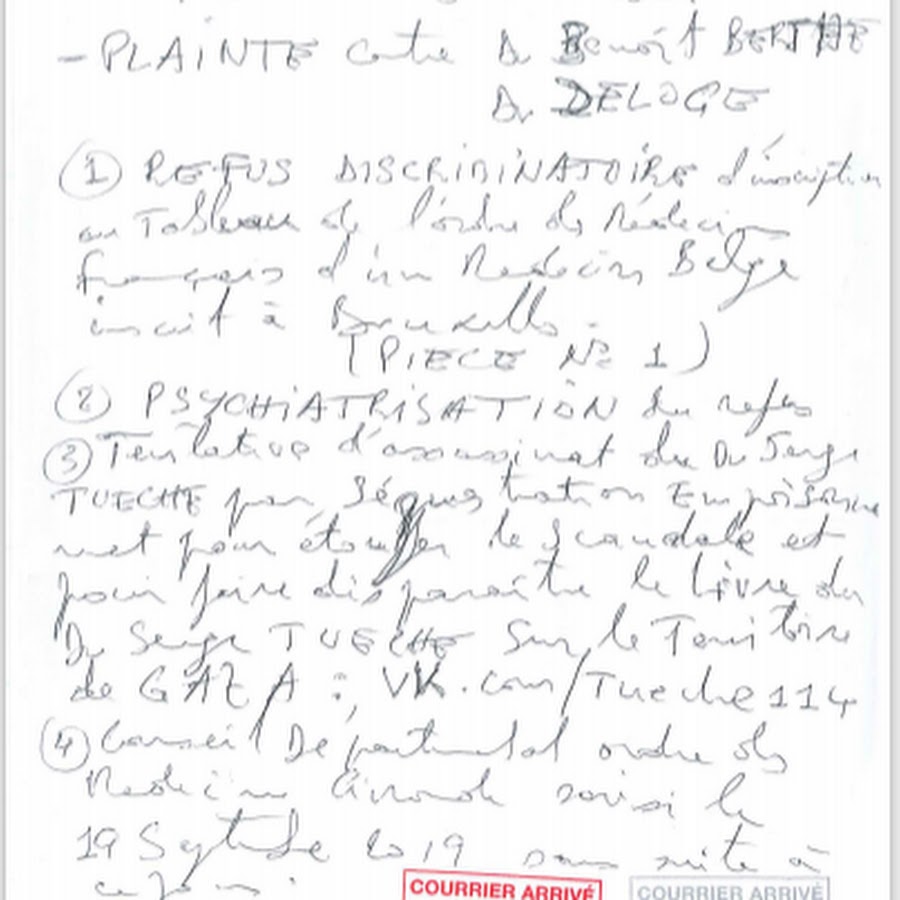 - PLAINTE contre Dr Benoît BERTHE
Dr DELOGE
① REFUS DISCRIMINATOIRE d'inscription
au Tableau de l'ordre des Médecins
français d'un Medecin Belge
inscrit à Bruxelles.
(PIECE N° 1)
② PSYCHIATRISATION du refus
③ Tentative d'assassinat du Dr Serge
TUECHE par Séquestration Emprisonne
ment pour étouffer le Scandale et
pour faire disparaître le livre du
Dr Serge TUECHE Sur le Territoire
de GAZA : VK.com/Tueche114
④ Conseil Départemental ordre des
Medecins Gironde saisi le
19 Septembre 2019 sans suite à
ce jour.
COURRIER ARRIVÉ COURRIER ARRIVÉ